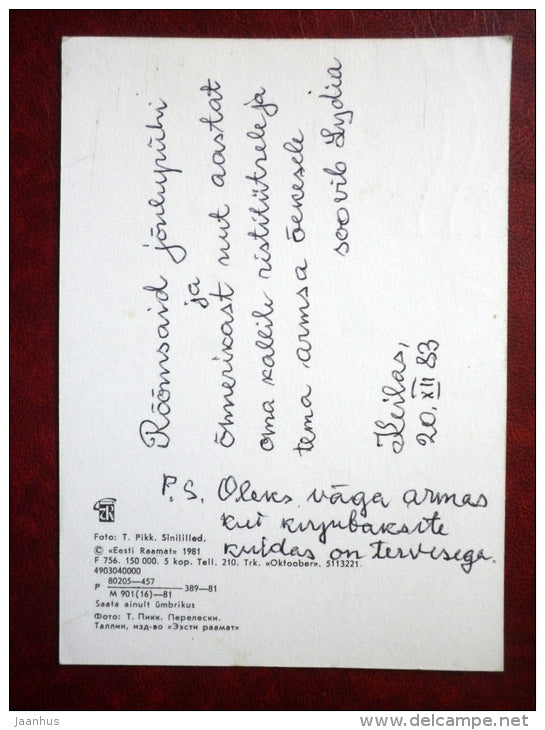 Rõõmsaid jõulupühi
ja
õnnerikast uut aastat
oma kallile ristitütrele ja
tema armsa õekesele
soovib Lydia
Keilas,
20. XII 83
P.S. Oleks väga armas
kui kirjutaksite
kuidas on tervisega.
Foto: T. Pikk. Sinililled.
© «Eesti Raamat» 1981
F 756. 150 000. 5 kop. Tell. 210. Trk. «Oktoober». 5113221.
4903040000
P 80205—457 389—81
M 901(16)—81
Saata ainult ümbrikus
Фото: Т. Пикк. Перелески.
Таллин, изд-во «Ээсти раамат»
jaanhus
www.delcampe.net